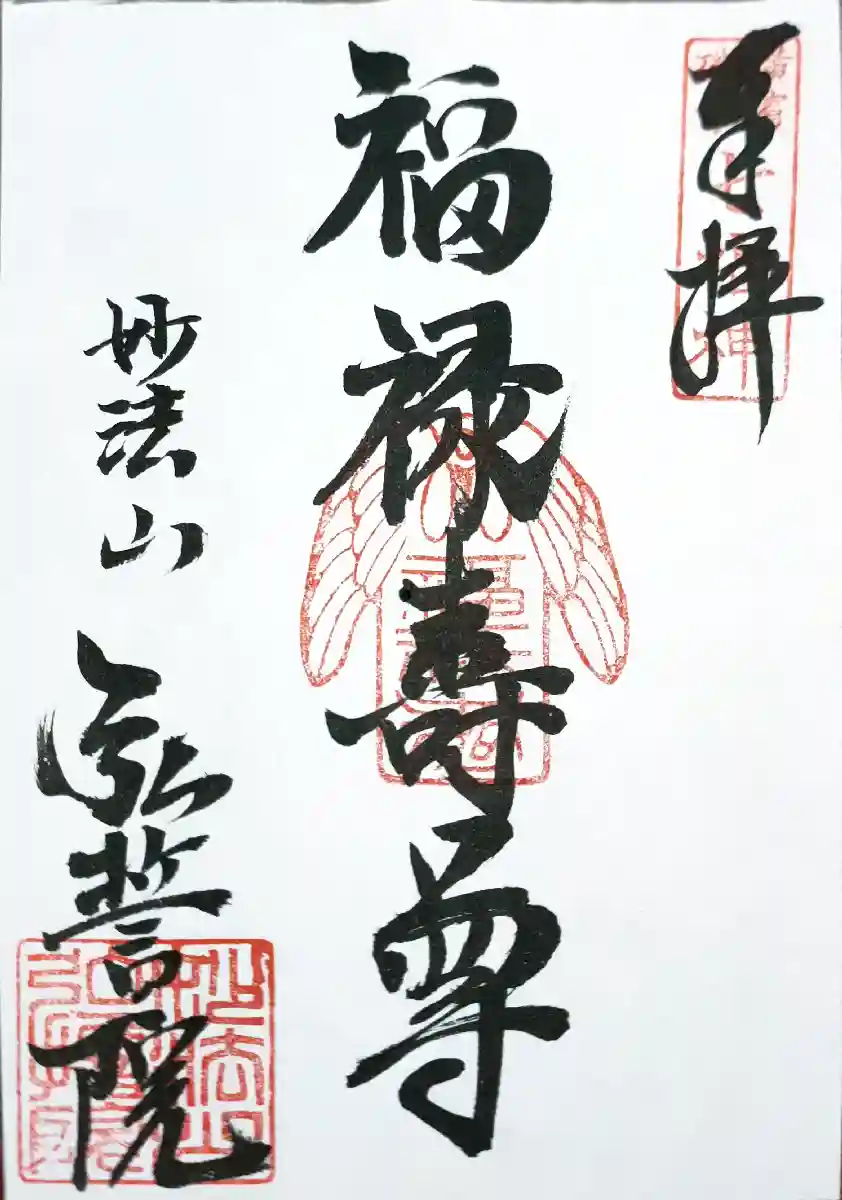 奉拝
福禄寿尊
妙法山 弘誓院